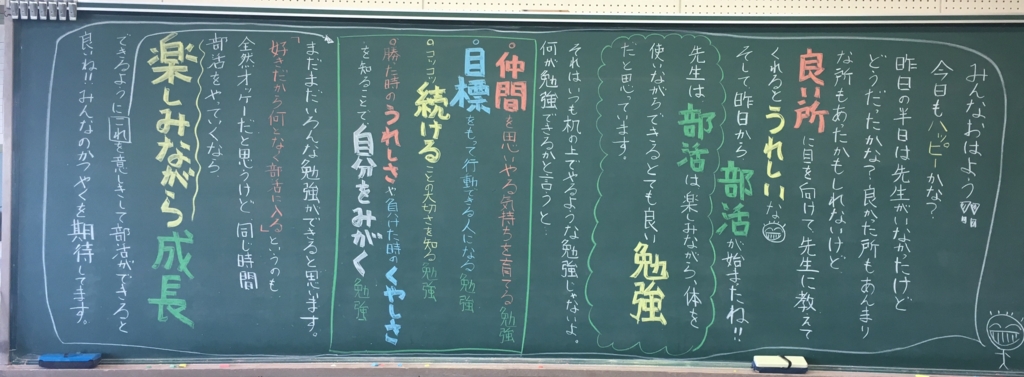 みんなおはよう!!
今日もハッピーかな?
昨日の半日は先生がいなかったけど
どうだったかな?良かった所もあんまり
な所もあったかもしれないけど
良い所に目を向けて先生に教えて
くれるとうれしいな
そして昨日から部活が始またね!!
先生は部活は楽しみながら、体を
使いながらできるとても良い勉強
だと思ています。
それはいつも机の上でやるような勉強じゃないよ。
何が勉強できるかと言うと…
仲間を思いやる気持ちを育てる勉強
目標をもって行動できる人になる勉強
コツコツ続けることの大切さを知る勉強
勝た時のうれしさや負けた時のくやしさ
を知ることで自分をみがく勉強
まだまだいろんな勉強ができると思います。
「好きだから、何となく部活に入る」というのも、
全然オッケーだと思うけど同じ時間
部活をやていくなら、
楽しみながら成長
できるようにこれを意しきして部活ができると
良いね!!みんなのかつやくを期待してます。